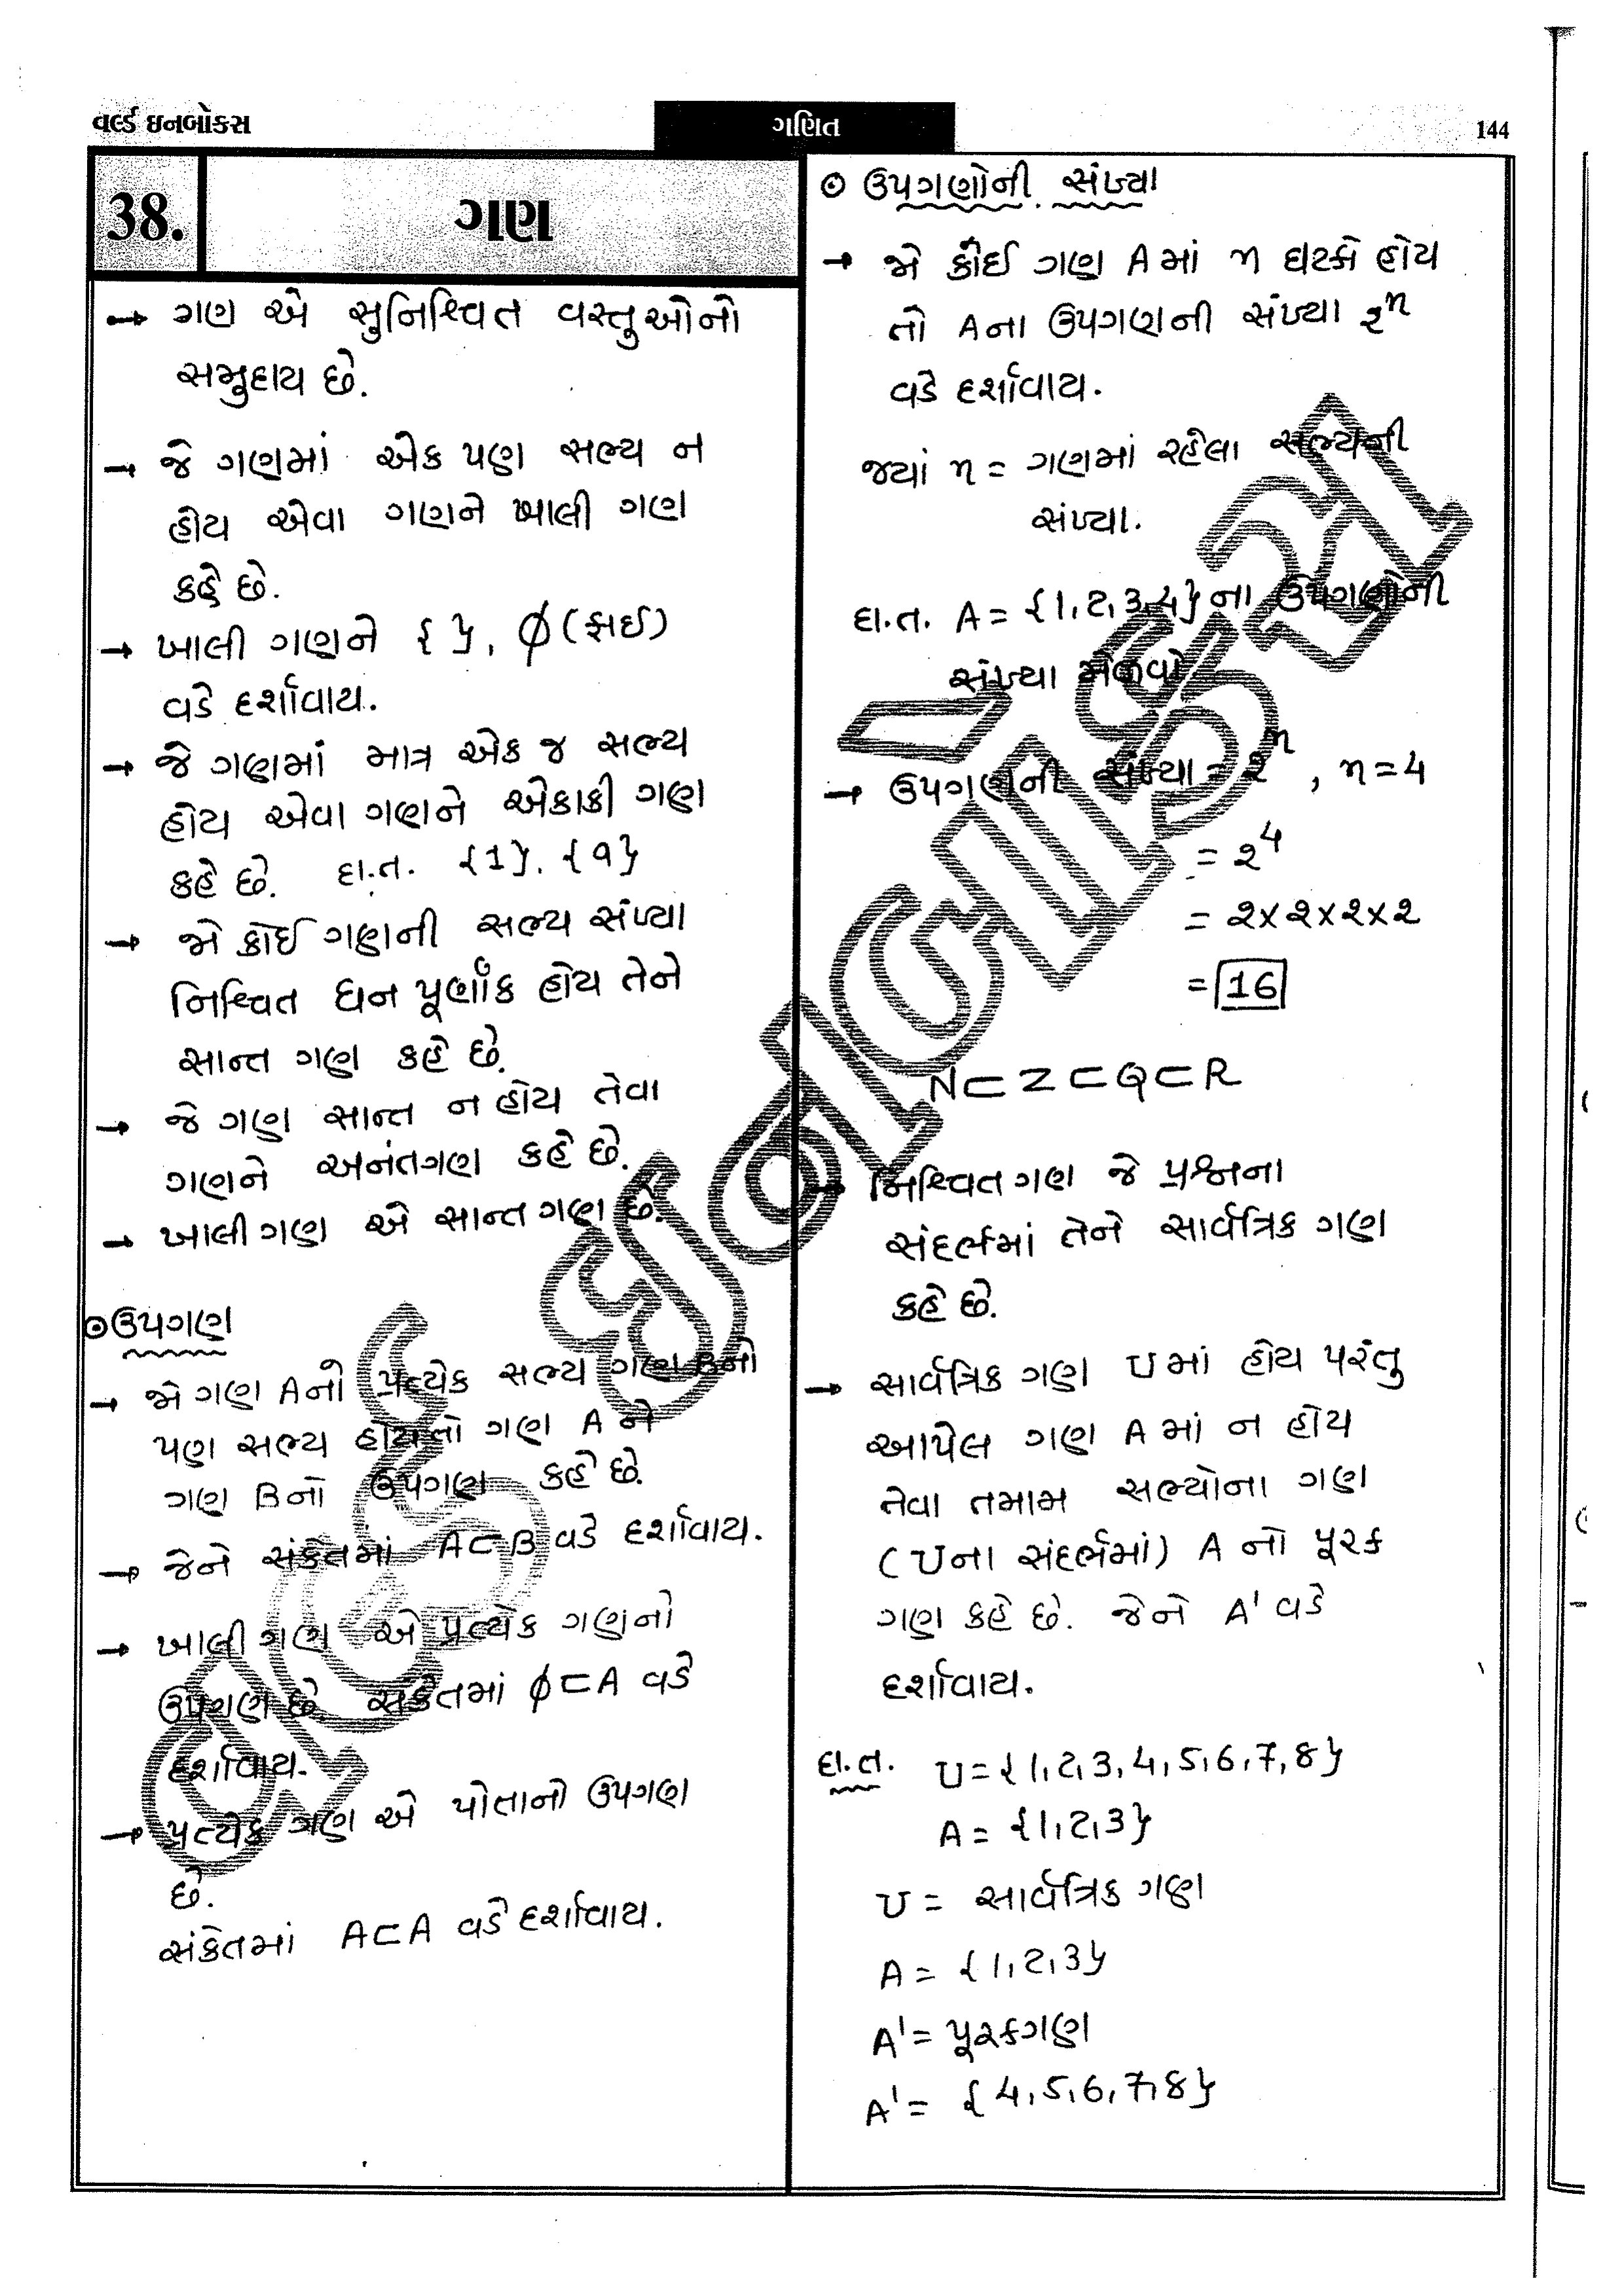 વર્લ્ડ ઇનબોક્સ
ગણિત
144
38.
ગણ
→ ગણ એ સુનિશ્ચિત વસ્તુઓનો
સમુદાય છે.
→ જે ગણમાં એક પણ સભ્ય ન
હોય એવા ગણને ખાલી ગણ
કહે છે.
→ ખાલી ગણને { }, ϕ (ફાઈ)
વડે દર્શાવાય.
→ જે ગણમાં માત્ર એક જ સભ્ય
હોય એવા ગણને એકાકી ગણ
કહે છે. દા.ત. {1}, {9}
→ જો કોઈ ગણની સભ્ય સંખ્યા
નિશ્ચિત ધન પૂર્ણાંક હોય તેને
સાન્ત ગણ કહે છે.
→ જે ગણ સાન્ત ન હોય તેવા
ગણને અનંતગણ કહે છે.
→ ખાલી ગણ એ સાન્ત ગણ છે.
⊙ ઉપગણ
→ જો ગણ A નો પ્રત્યેક સભ્ય ગણ B નો
પણ સભ્ય હોય તો ગણ A ને
ગણ B નો ઉપગણ કહે છે.
→ જેને સંકેતમાં A⊂B વડે દર્શાવાય.
→ ખાલી ગણ એ પ્રત્યેક ગણનો
ઉપગણ છે. સંકેતમાં ϕ⊂A વડે
દર્શાવાય.
→ પ્રત્યેક ગણ એ પોતાનો ઉપગણ
છે.
સંકેતમાં A⊂A વડે દર્શાવાય.
⊙ ઉપગણોની સંખ્યા
→ જો કોઈ ગણ A માં n ઘટકો હોય
તો A ના ઉપગણની સંખ્યા 2ⁿ
વડે દર્શાવાય.
જ્યાં n = ગણમાં રહેલા સભ્યની
સંખ્યા.
દા.ત. A = {1,2,3,4} ના ઉપગણોની
સંખ્યા મેળવો
→ ઉપગણની સંખ્યા = 2ⁿ, n=4
= 2⁴
= 2×2×2×2
= 16
N⊂Z⊂Q⊂R
→ નિશ્ચિત ગણ જે પ્રશ્નના
સંદર્ભમાં તેને સાર્વત્રિક ગણ
કહે છે.
→ સાર્વત્રિક ગણ U માં હોય પરંતુ
આપેલ ગણ A માં ન હોય
તેવા તમામ સભ્યોના ગણ
(U ના સંદર્ભમાં) A નો પૂરક
ગણ કહે છે. જેને A' વડે
દર્શાવાય.
દા.ત. U={1,2,3,4,5,6,7,8}
A = {1,2,3}
U = સાર્વત્રિક ગણ
A = {1,2,3}
A' = પૂરકગણ
A' = {4,5,6,7,8}
વર્લ્ડ ઈનબોક્ષ